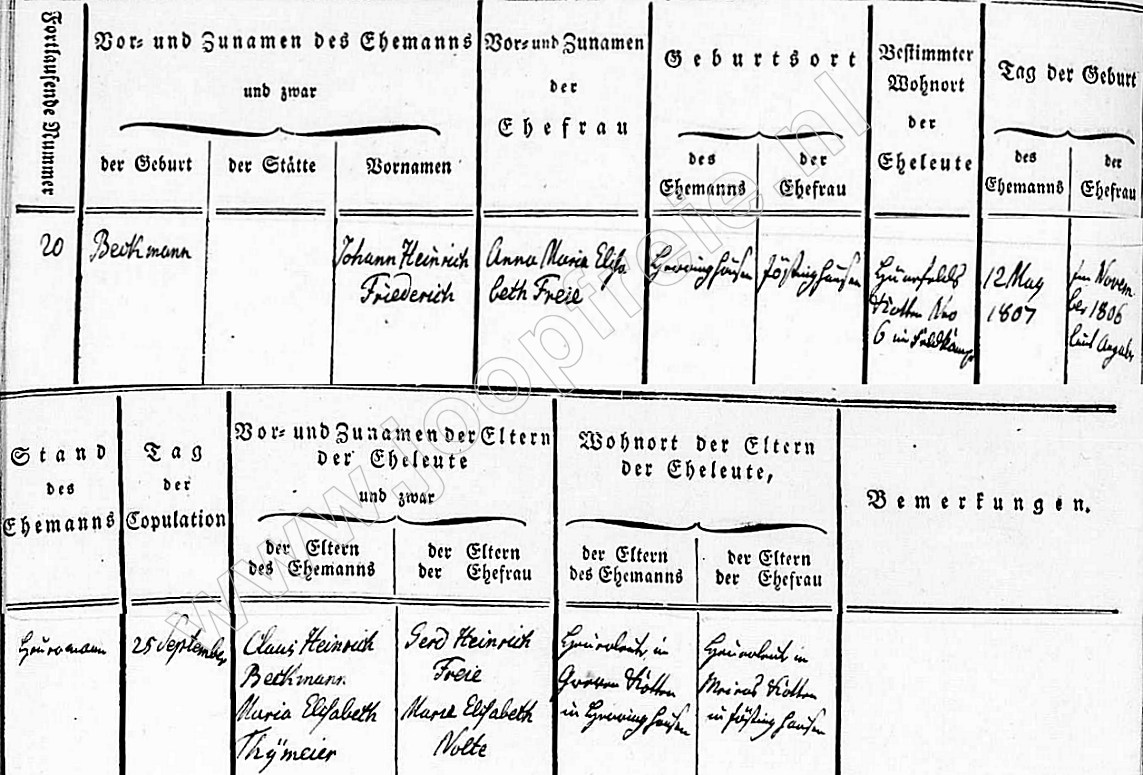 Fortlaufende Nummer
Vor- und Zunamen des Ehemanns
und zwar
der Geburt
der Stätte
Vornamen
Vor- und Zunamen
der
Ehefrau
Geburtsort
des
Ehemanns
der
Ehefrau
Bestimmter
Wohnort
der
Eheleute
Tag der Geburt
des
Ehemanns
der
Ehefrau
20
Beckmann
Johann Heinrich
Friederich
Anna Maria Elisa
beth Freie
Herringhausen
Jöstinghausen
Kotten Nro
6 in
12 May
1807
im Novem
ber 1806
laut Angabe
Stand
des
Ehemanns
Tag
der
Copulation
Vor- und Zunamen der Eltern
der Eheleute
und zwar
der Eltern
des Ehemanns
der Eltern
der Ehefrau
Wohnort der Eltern
der Eheleute,
der Eltern
des Ehemanns
der Eltern
der Ehefrau
Bemerkungen.
Heuermann
25 September
Claus Heinrich
Beckmann
Maria Elisabeth
Thÿmeier
Gerd Heinrich
Freie
Marie Elisabeth
Nolte
Heuerleute, in
Kotten
in Herringhausen
Heuerleut in
Meiers Kotten
in Jöstinghausen
www.joopfreie.nl